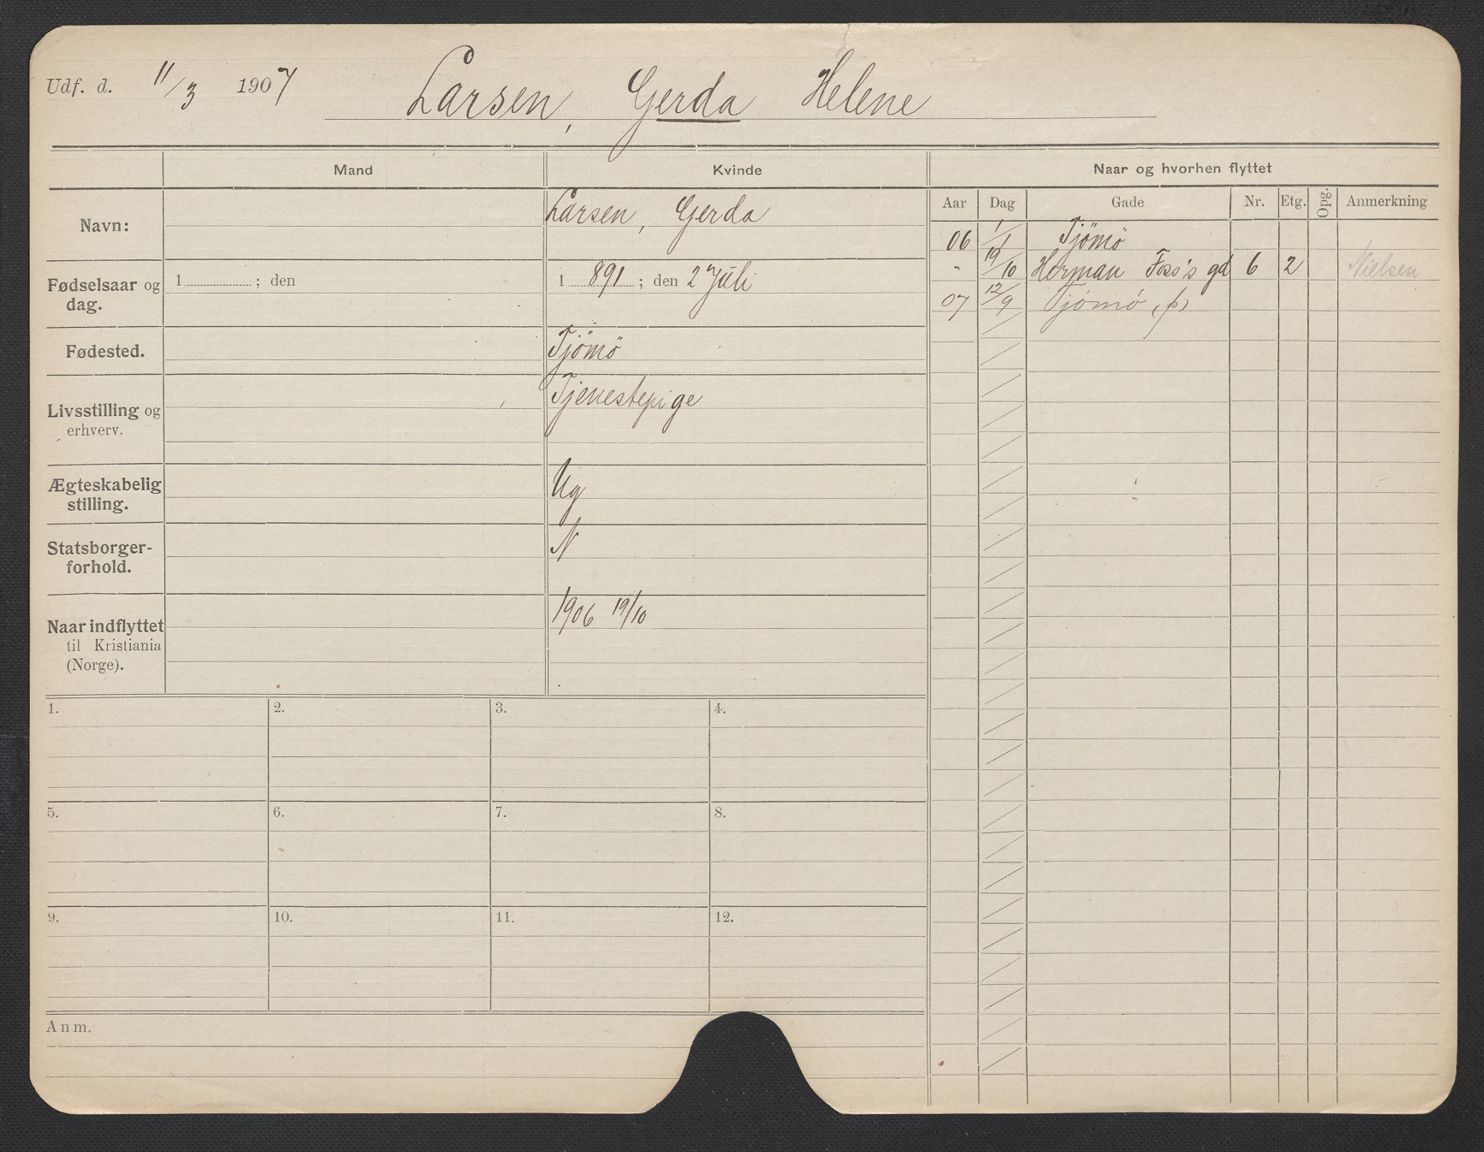 Udf. d. 11/3 1907 Larsen, Gerda Helene
Mand Kvinde Naar og hvorhen flyttet
Navn: Larsen, Gerda
Fødselsaar og dag. 1 ; den 1891 ; den 2 Juli
Fødested. Tjömö
Livsstilling og erhverv. Tjenestepige
Ægteskabelig stilling. Ug
Statsborger-forhold. N
Naar indflyttet til Kristiania (Norge). 1906 19/10
Aar Dag Gade Nr. Etg. Opg. Anmerkning
06 1/1 Tjömö
" 19/10 Herman Foss's gd 6 2 Nielsen
07 12/9 Tjömö (p)
1. 2. 3. 4.
5. 6. 7. 8.
9. 10. 11. 12.
Anm.